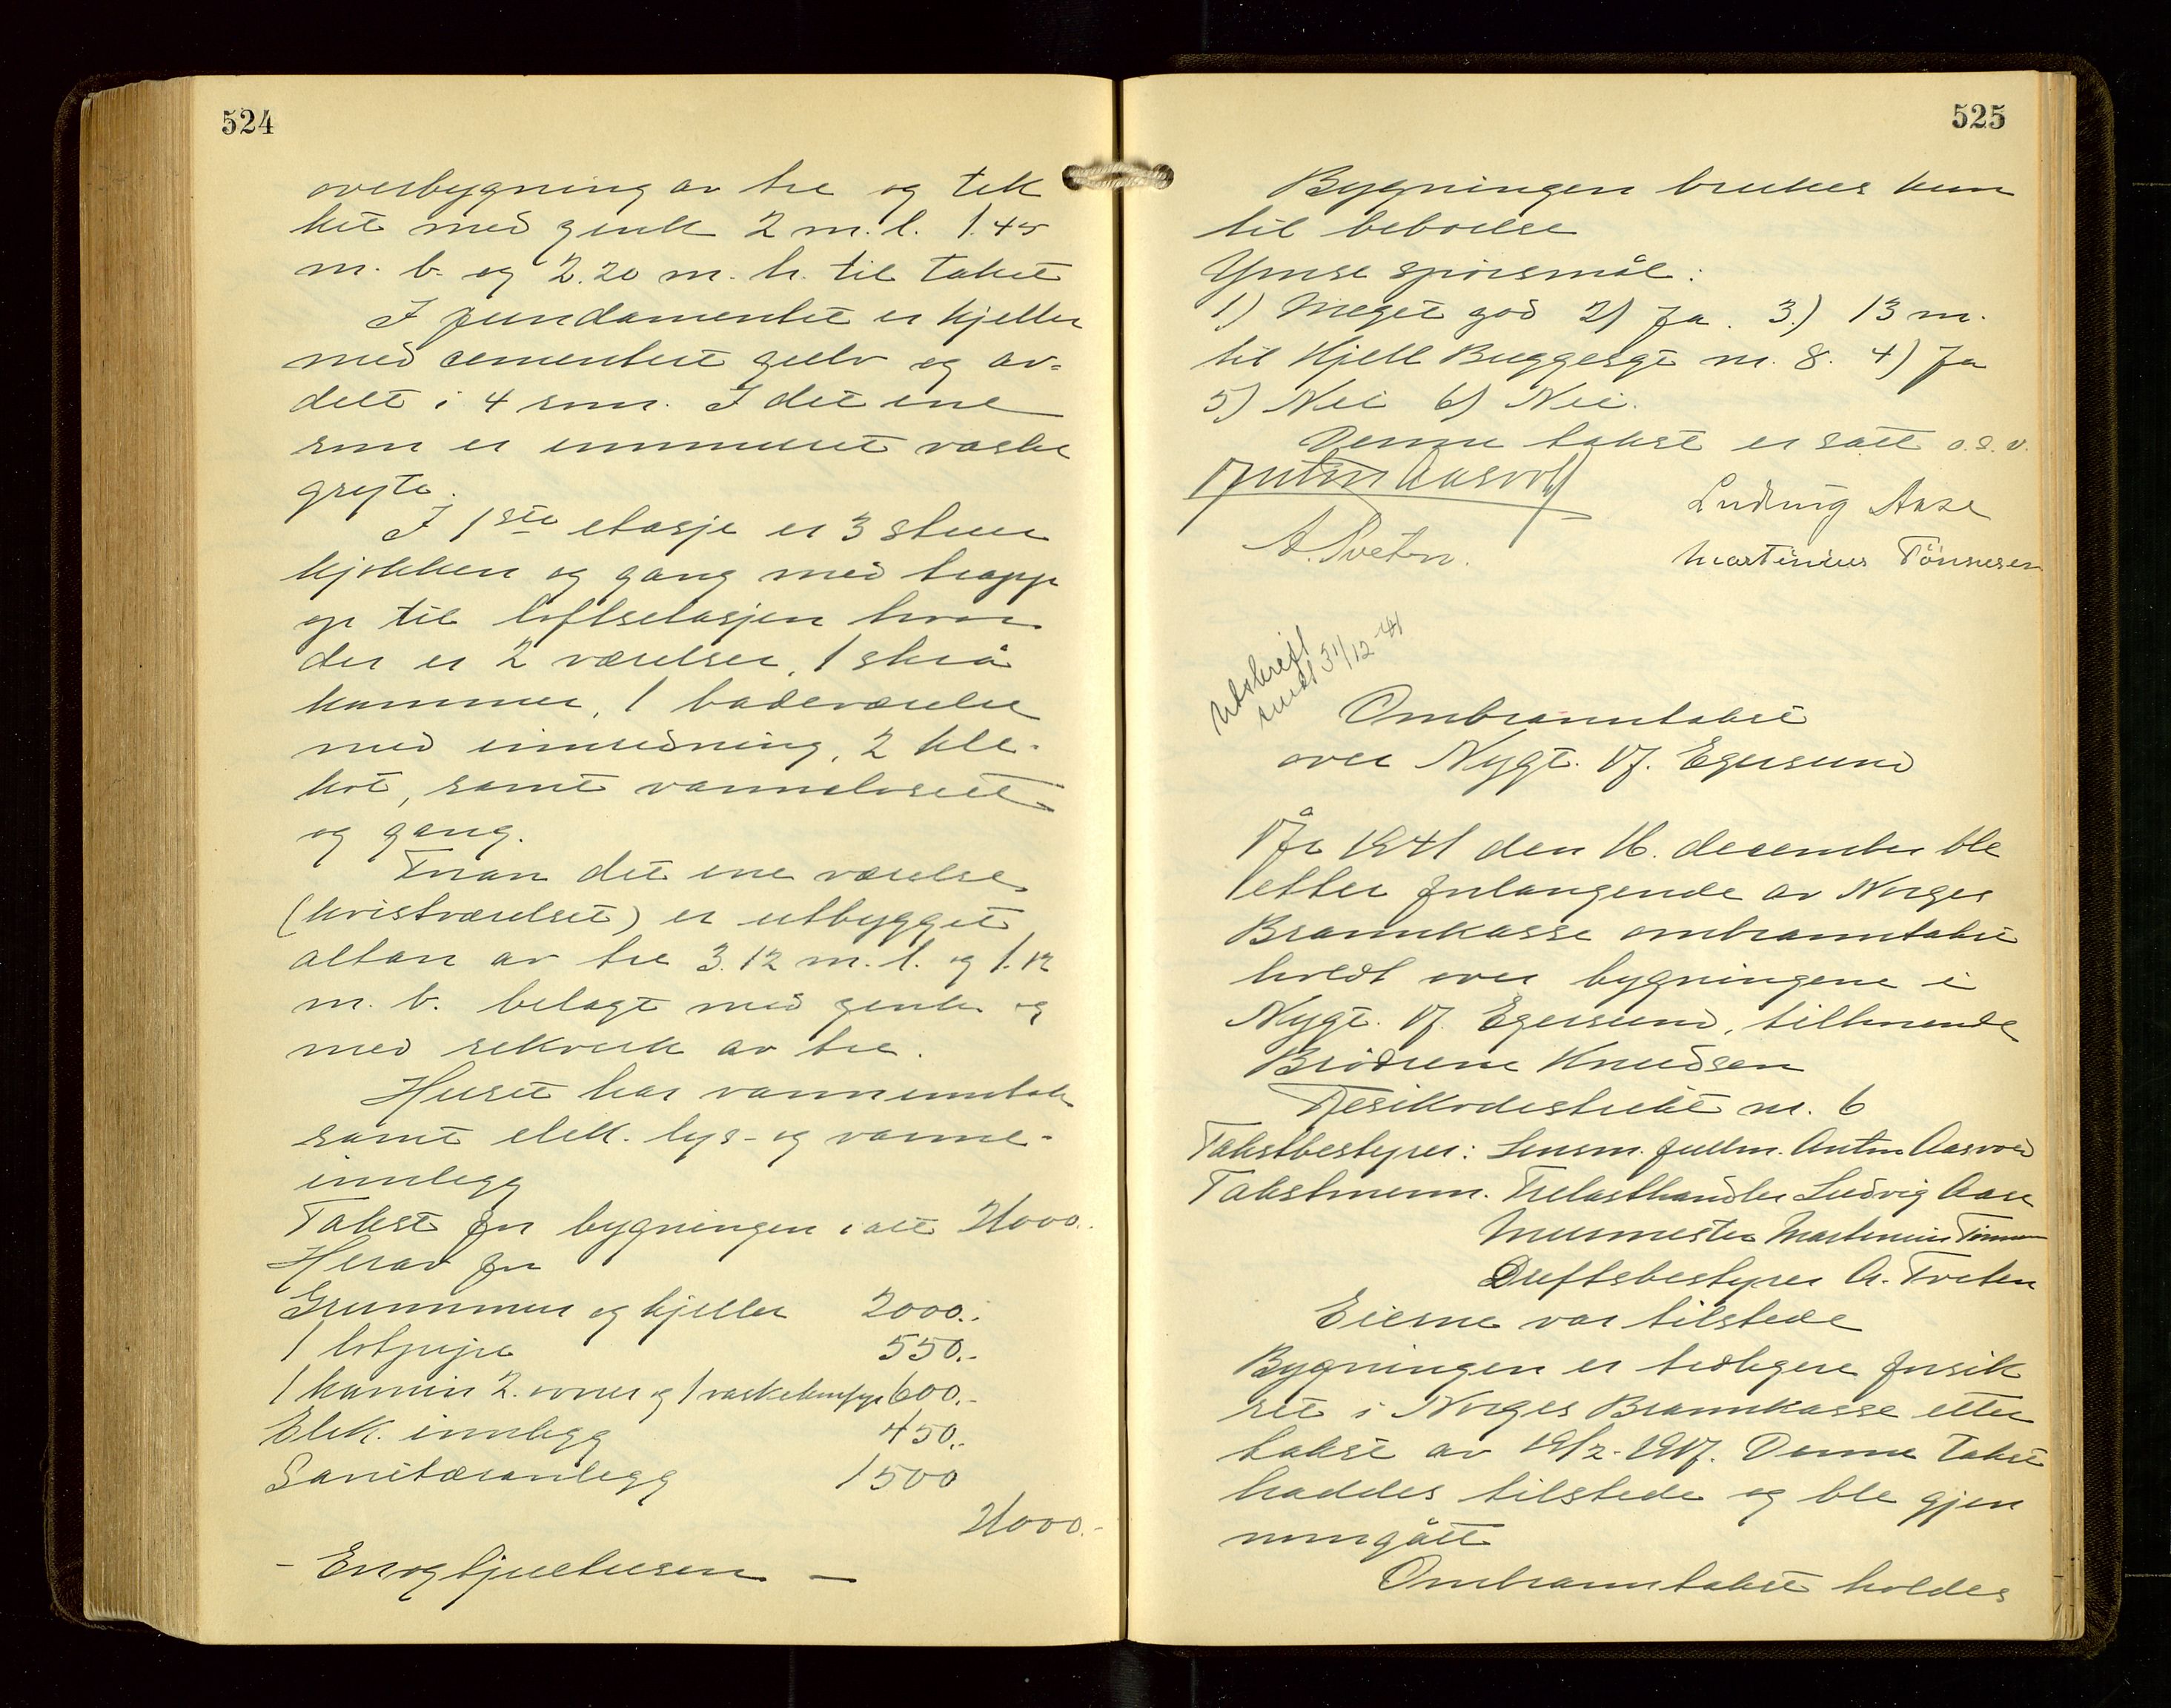 524
overbygning av tre og tek
ket med zink 2 m. l. 1.45
m. b. og 2.20 m. h. til taket
I fundamentet er kjeller
med cementert gulv og av-
delt i 4 rum. I det ene
rum er innmuret vaske
gryte.
I 1ste etasje er 3 stuer
kjøkken og gang med trapp
op til loftsetasjen hvor
der er 2 værelser, 1 skrå
kammer, 1 badeværelse
med innredning, 2 kle-
kot, samt vannclosett
og gang.
Fra det ene værelse
(kvistværelset) er utbygget
altan av tre 3.12 m. l. og 1.12
m. b. belagt med zink og
med rekverk av tre.
Huset har vanninntak
samt elek. lys- og varme-
innlegg
Takst for bygningen i alt 21000.
Herav for
Grunnmur og kjeller 2000.-
1 lotpipe 550.-
1 kamin 2. ovner og 1 vaskekomfyr 600.-
Elek. innlegg 450.-
Sanitæranlegg 1500
21000.-
- Enogtjuetusen -
525
Bygningen brukes kun
til beboelse
Ymse spørsmål:
1) Meget god 2) Ja. 3.) 13 m.
til Kjell Buggesgt nr. 8. 4) Ja
5) Nei 6) Nei.
Denne takst er satt o.s.v.
Anton Aasvold
Ludvig Aase
A. Tveten.
Martinius Tönnesen
Utskrift
sendt 31/12-41
Ombranntakst
over Nygt. 17. Egersund
År 1941 den 16. december ble
etter forlangende av Norges
Brannkasse ombranntakst
holdt over bygningene i
Nygt. 17. Egersund, tilhørende
Brödrene Knudsen
Resikodestrikt nr. 6
Takstbestyrer: Lensm. fullm. Anton Aasvold
Takstmenn. Trelasthandler Ludvig Aase
Murmester Martinius Tönnesen
Driftsbestyrer A. Tveten
Eierne var tilstede
Bygningen er tidligere forsik
ret i Norges Brannkasse etter
takst av 19/2-1917. Denne takst
haddes tilstede og ble gjen
nomgått
Ombranntakst holdes